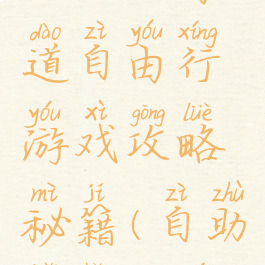 dào zì yóu xíng
道自由行
yóu xì gōng lüè
游戏攻略
mì jí ( zì zhù
秘籍(自助